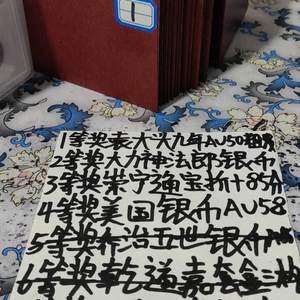 1
1等奖袁大头九年AU50
2等奖大力神法郎银币
3等奖崇宁通宝折十85分
4等奖美国银币AU58
5等奖乔治五世银币
6等奖乾道嘉套金油